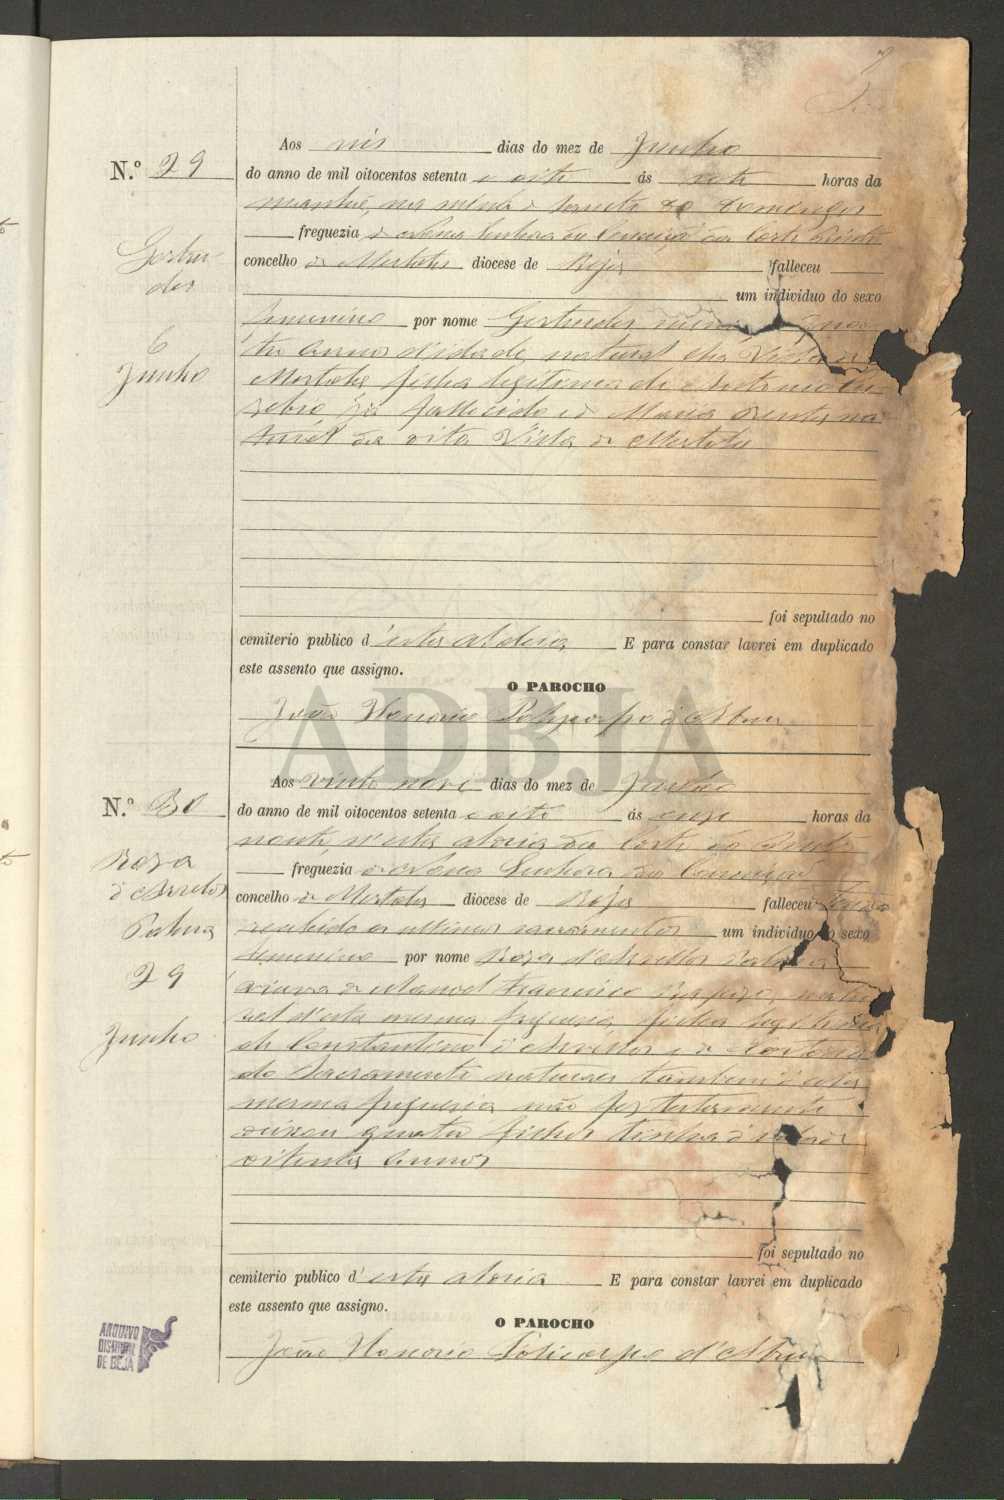 Aos seis dias do mez de Junho
N.º 29
do anno de mil oitocentos setenta e oito ás sete horas da
manhã, na mina de Domingos
Gertru-
des
freguezia de Nossa Senhora da Conceição da Corte Pinto
concelho de Mertola diocese de Beja falleceu
um individuo do sexo
femenino por nome Gertrudes
6
Junho
tro annos d'idade natural da Villa de
Mertola filha legitima de Antonio Eu
zebio já fallecido e de Maria Bento na
tural da dita Villa de Mertola
foi sepultado no
cemiterio publico d'esta aldeia E para constar lavrei em duplicado
este assento que assigno.
O PAROCHO
João Honorio Policarpo d'Abreu
ADBJA
Aos vinte nove dias do mez de Junho
N.º 30
do anno de mil oitocentos setenta e oito ás onze horas da
noute n'esta aldeia da Corte do Pinto
Roza
d'Arrelos
Palma
29
Junho
freguezia de Nossa Senhora da Conceição
concelho de Mertola diocese de Beja falleceu tendo
recebido os ultimos sacramentos um individuo do sexo
femenino por nome Roza d'Arellos Palma
viuva de Manoel Francisco natu
ral d'esta mesma freguezia filha legitima
de Constantino d' e de
do Sacramento naturaes tambem d'esta
mesma freguezia não fez testamento
deixou quatro filhos tinha d'idade
oitenta annos
foi sepultado no
cemiterio publico d'esta aldeia E para constar lavrei em duplicado
este assento que assigno.
O PAROCHO
João Honorio Policarpo d'Abreu
ARQUIVO
DISTRITAL
DE BEJA